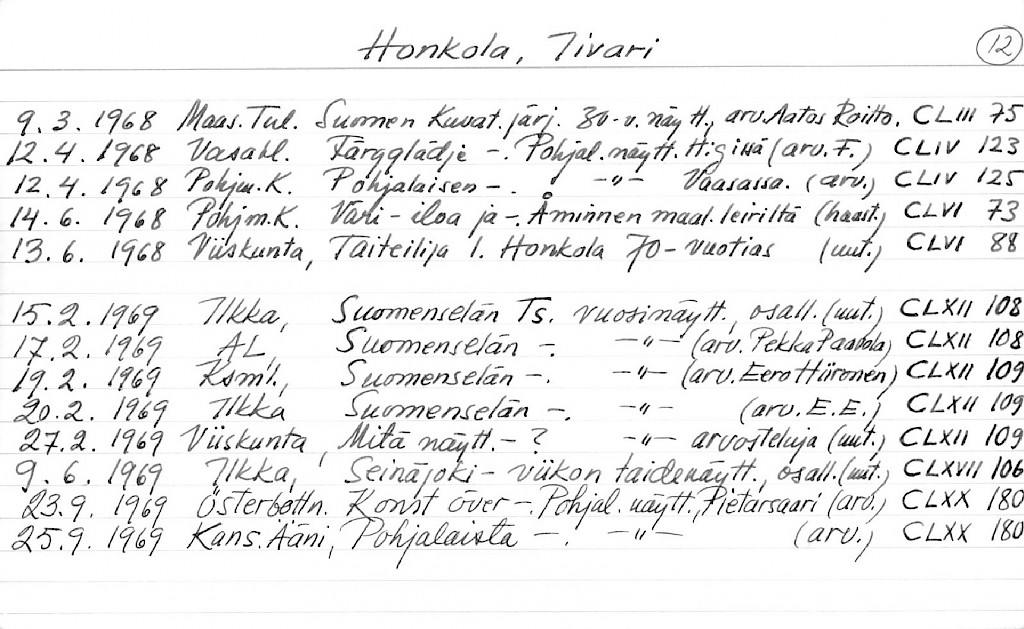 Honkola, Iivari 12
9. 3. 1968 Maas. Tul. Suomen Kuvat. järj. 30-v. näytt., arv. Aatos Roitto. CLIII 75
12. 4. 1968 Vasabl. Färgglädje -. Pohjal. näytt. H:gissä (arv. F.) CLIV 123
12. 4. 1968 Pohjm. K. Pohjalaisen -. -"- Vaasassa. (arv.) CLIV 125
14. 6. 1968 Pohjm. K. Väri-iloa ja -. Åminnen maal. leiriltä (haast.) CLVI 73
13. 6. 1968 Viiskunta, Taiteilija I. Honkola 70-vuotias (uut.) CLVI 88
15. 2. 1969 Ilkka, Suomenselän Ts. vuosinäytt., osall. (uut.) CLXII 108
17. 2. 1969 AL, Suomenselän -. -"- (arv. Pekka Paavola) CLXII 108
19. 2. 1969 Ksml., Suomenselän -. -"- (arv. Eero Hiironen) CLXII 109
20. 2. 1969 Ilkka Suomenselän -. -"- (arv. E.E.) CLXII 109
27. 2. 1969 Viiskunta, Mitä näytt. - ? -"- arvosteluja (uut.) CLXII 109
9. 6. 1969 Ilkka, Seinäjoki-viikon taidenäytt., osall. (uut.) CLXVII 106
23. 9. 1969 Österbottn. Konst över -. Pohjal. näytt., Pietarsaari (arv.) CLXX 180
25. 9. 1969 Kans. Ääni, Pohjalaista -. -"- (arv.) CLXX 180